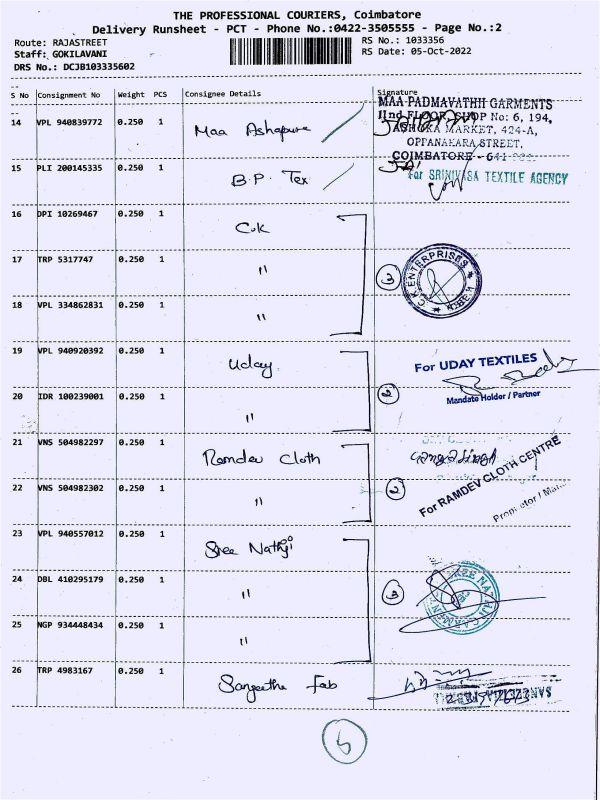 THE PROFESSIONAL COURIERS, Coimbatore
Delivery Runsheet - PCT - Phone No.:0422-3505555 - Page No.:2
Route: RAJASTREET
RS No.: 1033356
Staff: GOKILAVANI
RS Date: 05-Oct-2022
DRS No.: DCJB103335602
S No Consignment No Weight PCS Consignee Details Signature
MAA PADMAVATHII GARMENTS
IInd FLOOR, SHOP No: 6, 194,
14 VPL 940839772 0.250 1 Maa Ashapura
ASHOKA MARKET, 424-A,
OPPANAKARA STREET,
COIMBATORE - 641
15 PLI 200145335 0.250 1 B.P. Tex
For SRINIVASA TEXTILE AGENCY
16 DPI 10269467 0.250 1 C.K
17 TRP 5317747 0.250 1 "
3 C.K ENTERPRISES
18 VPL 334862831 0.250 1 "
19 VPL 940920392 0.250 1 Uday
For UDAY TEXTILES
20 IDR 100239001 0.250 1 "
2 Mandate Holder / Partner
21 VNS 504982297 0.250 1 Ramdev Cloth
22 VNS 504982302 0.250 1 "
2 For RAMDEV CLOTH CENTRE
23 VPL 940557012 0.250 1 Sree Nathji
24 DBL 410295179 0.250 1 "
3
25 NGP 934448434 0.250 1 "
26 TRP 4983167 0.250 1 Sangeetha Fab